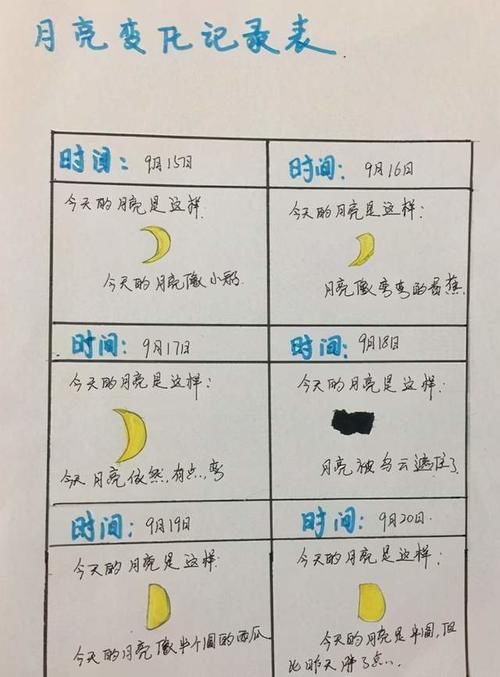 月亮变化记录表
时间：9月15日
时间：9月16日
今天的月亮是这样.
今天的月亮像小船.
今天的月亮是这样：
月亮像弯弯的香蕉.
时间：9月17日
时间：9月18日
今天的月亮是这样：
今天月亮依然,有点,弯
今天的月亮是这样：
月亮被乌云遮住了
时间：9月19日
时间：9月20日.
今天的月亮是这样：
今天的月亮像半个圆的西瓜
今天的月亮是这样：
今天的月亮是半圆,但
比昨天胖了点...